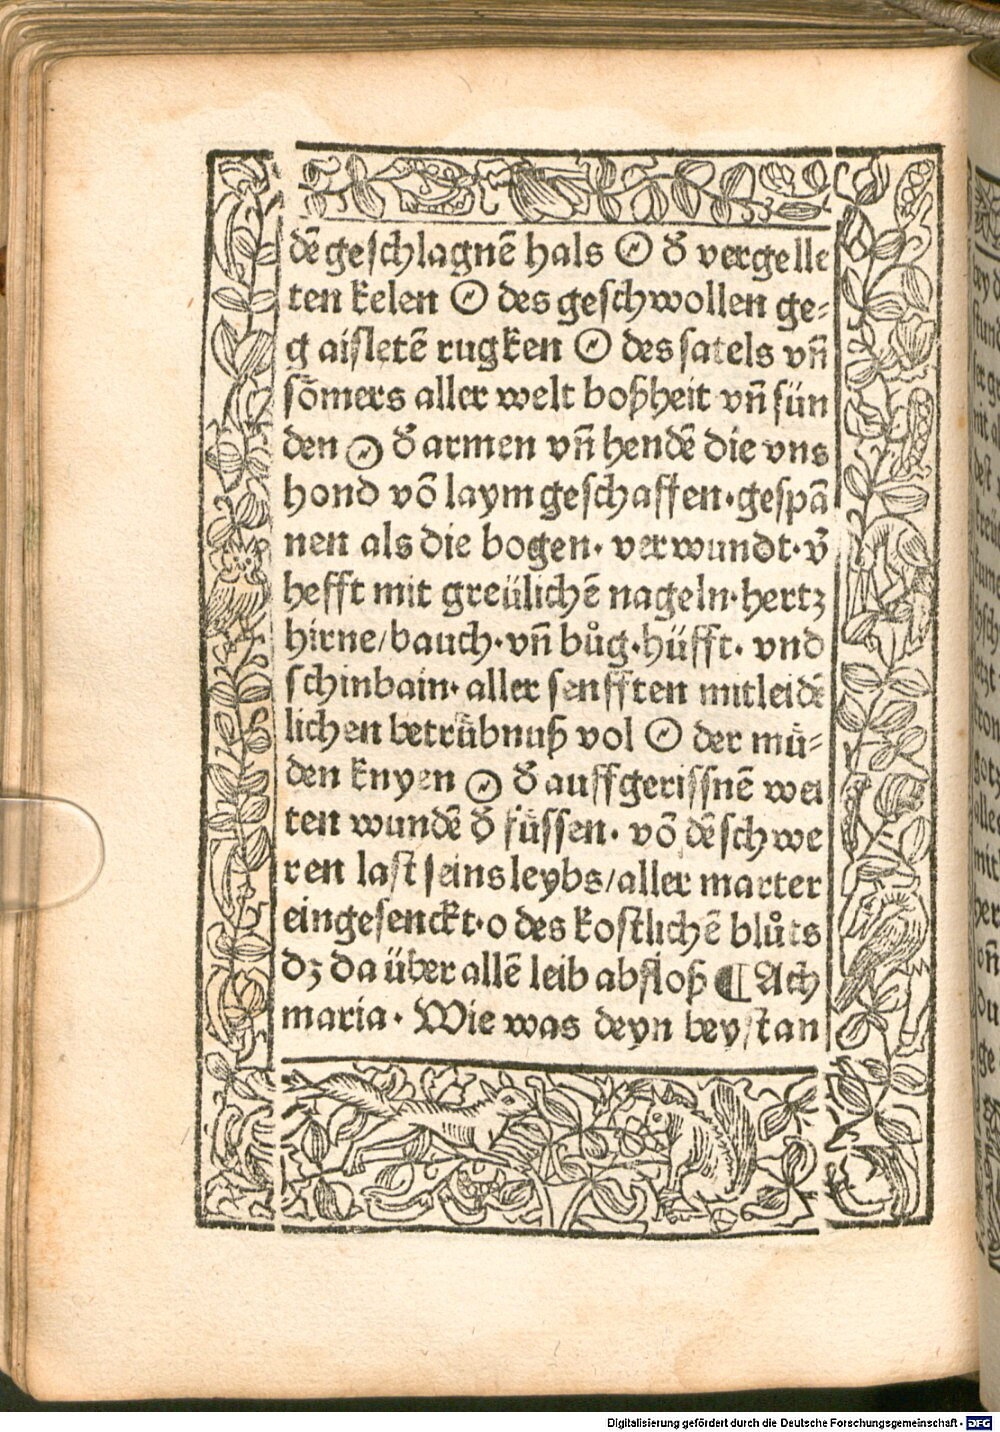 dē geschlagnē hals O dˀ vergelle
ten kelen O des geschwollen ge⸗
gaisletē rugken O des satels vn̄
sōmers aller welt boßheit vn̄ sün
den O dˀ armen vn̄ hendē die vns
hond vō laym geschaffen· gespā
nen als die bogen· verwundt· vˀ
hefft mit greülichē nageln· hertz
hirne/ bauch· vn̄ bůg· hüfft· vnd
schinbain· aller senfften mitleidē
lichen betrübnuß vol O der mü⸗
den knyen O dˀ auffgerissnē wei
ten wundē dˀ füssen· vō dē schwe
ren last seins leybs/ aller marter
eingesenckt· o des kostlichē blůts
dz da über allē leib abfloß ¶ Ach
maria· Wie was deyn beystan
Digitalisierung gefördert durch die Deutsche Forschungsgemeinschaft - DFG